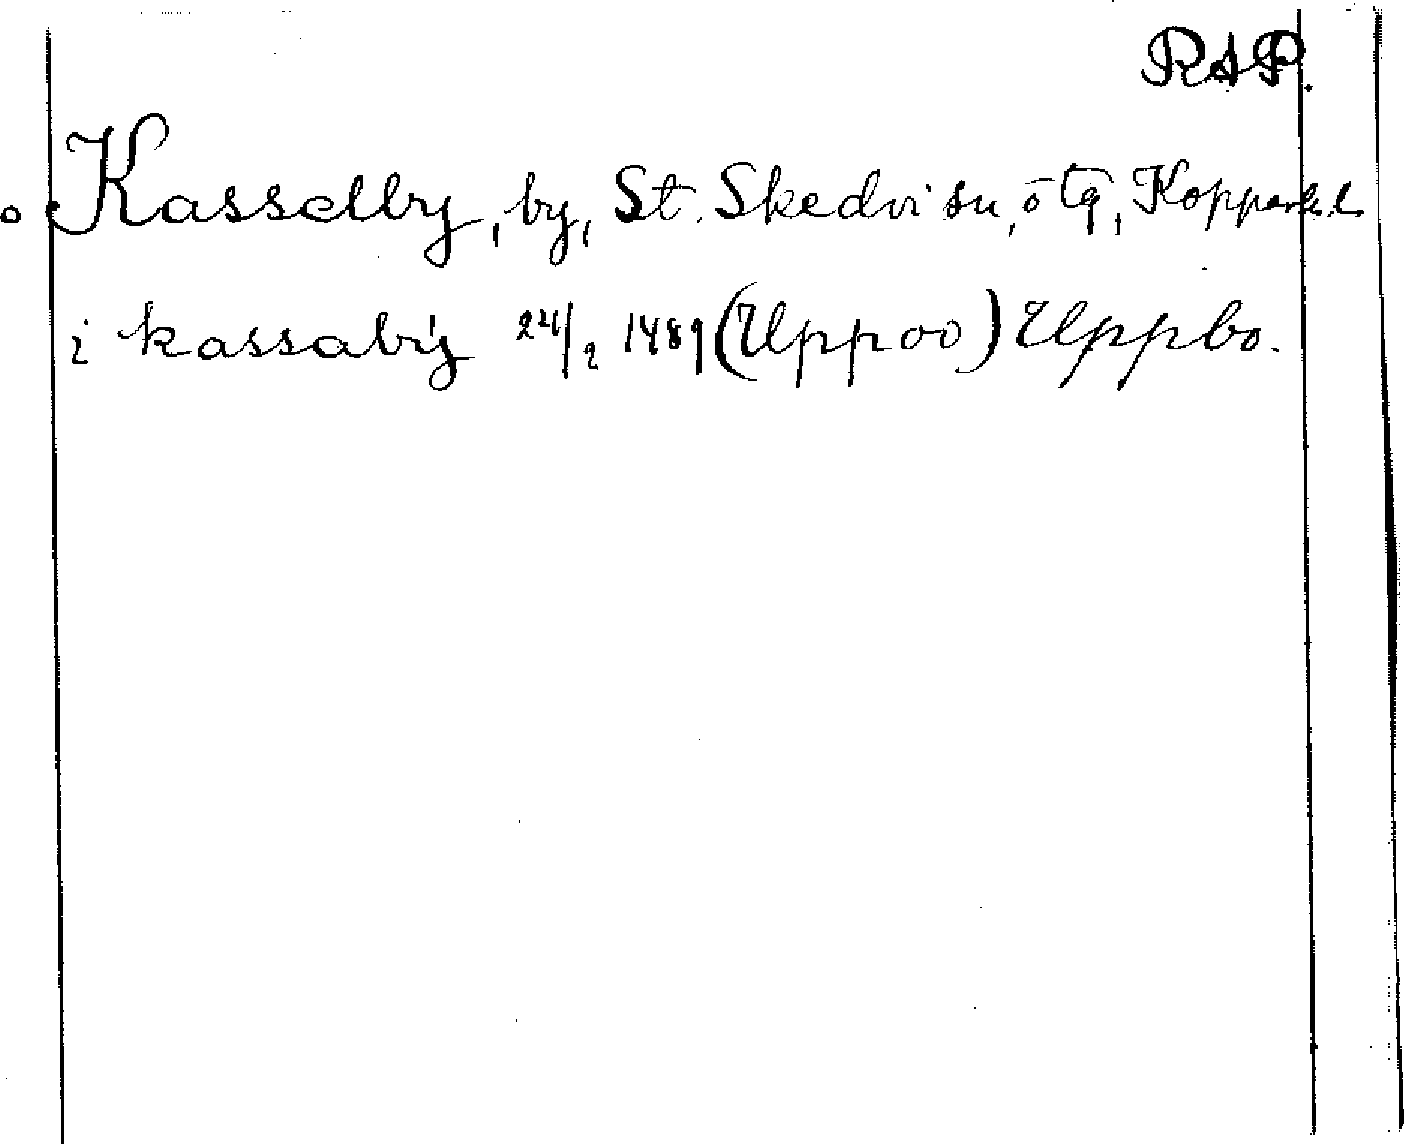 RAP.
Kasselby, by, St. Skedvi sn, ötg, Kopparb. l.
i kassabÿ 24/2 1489 (Uppoo) Uppbo.